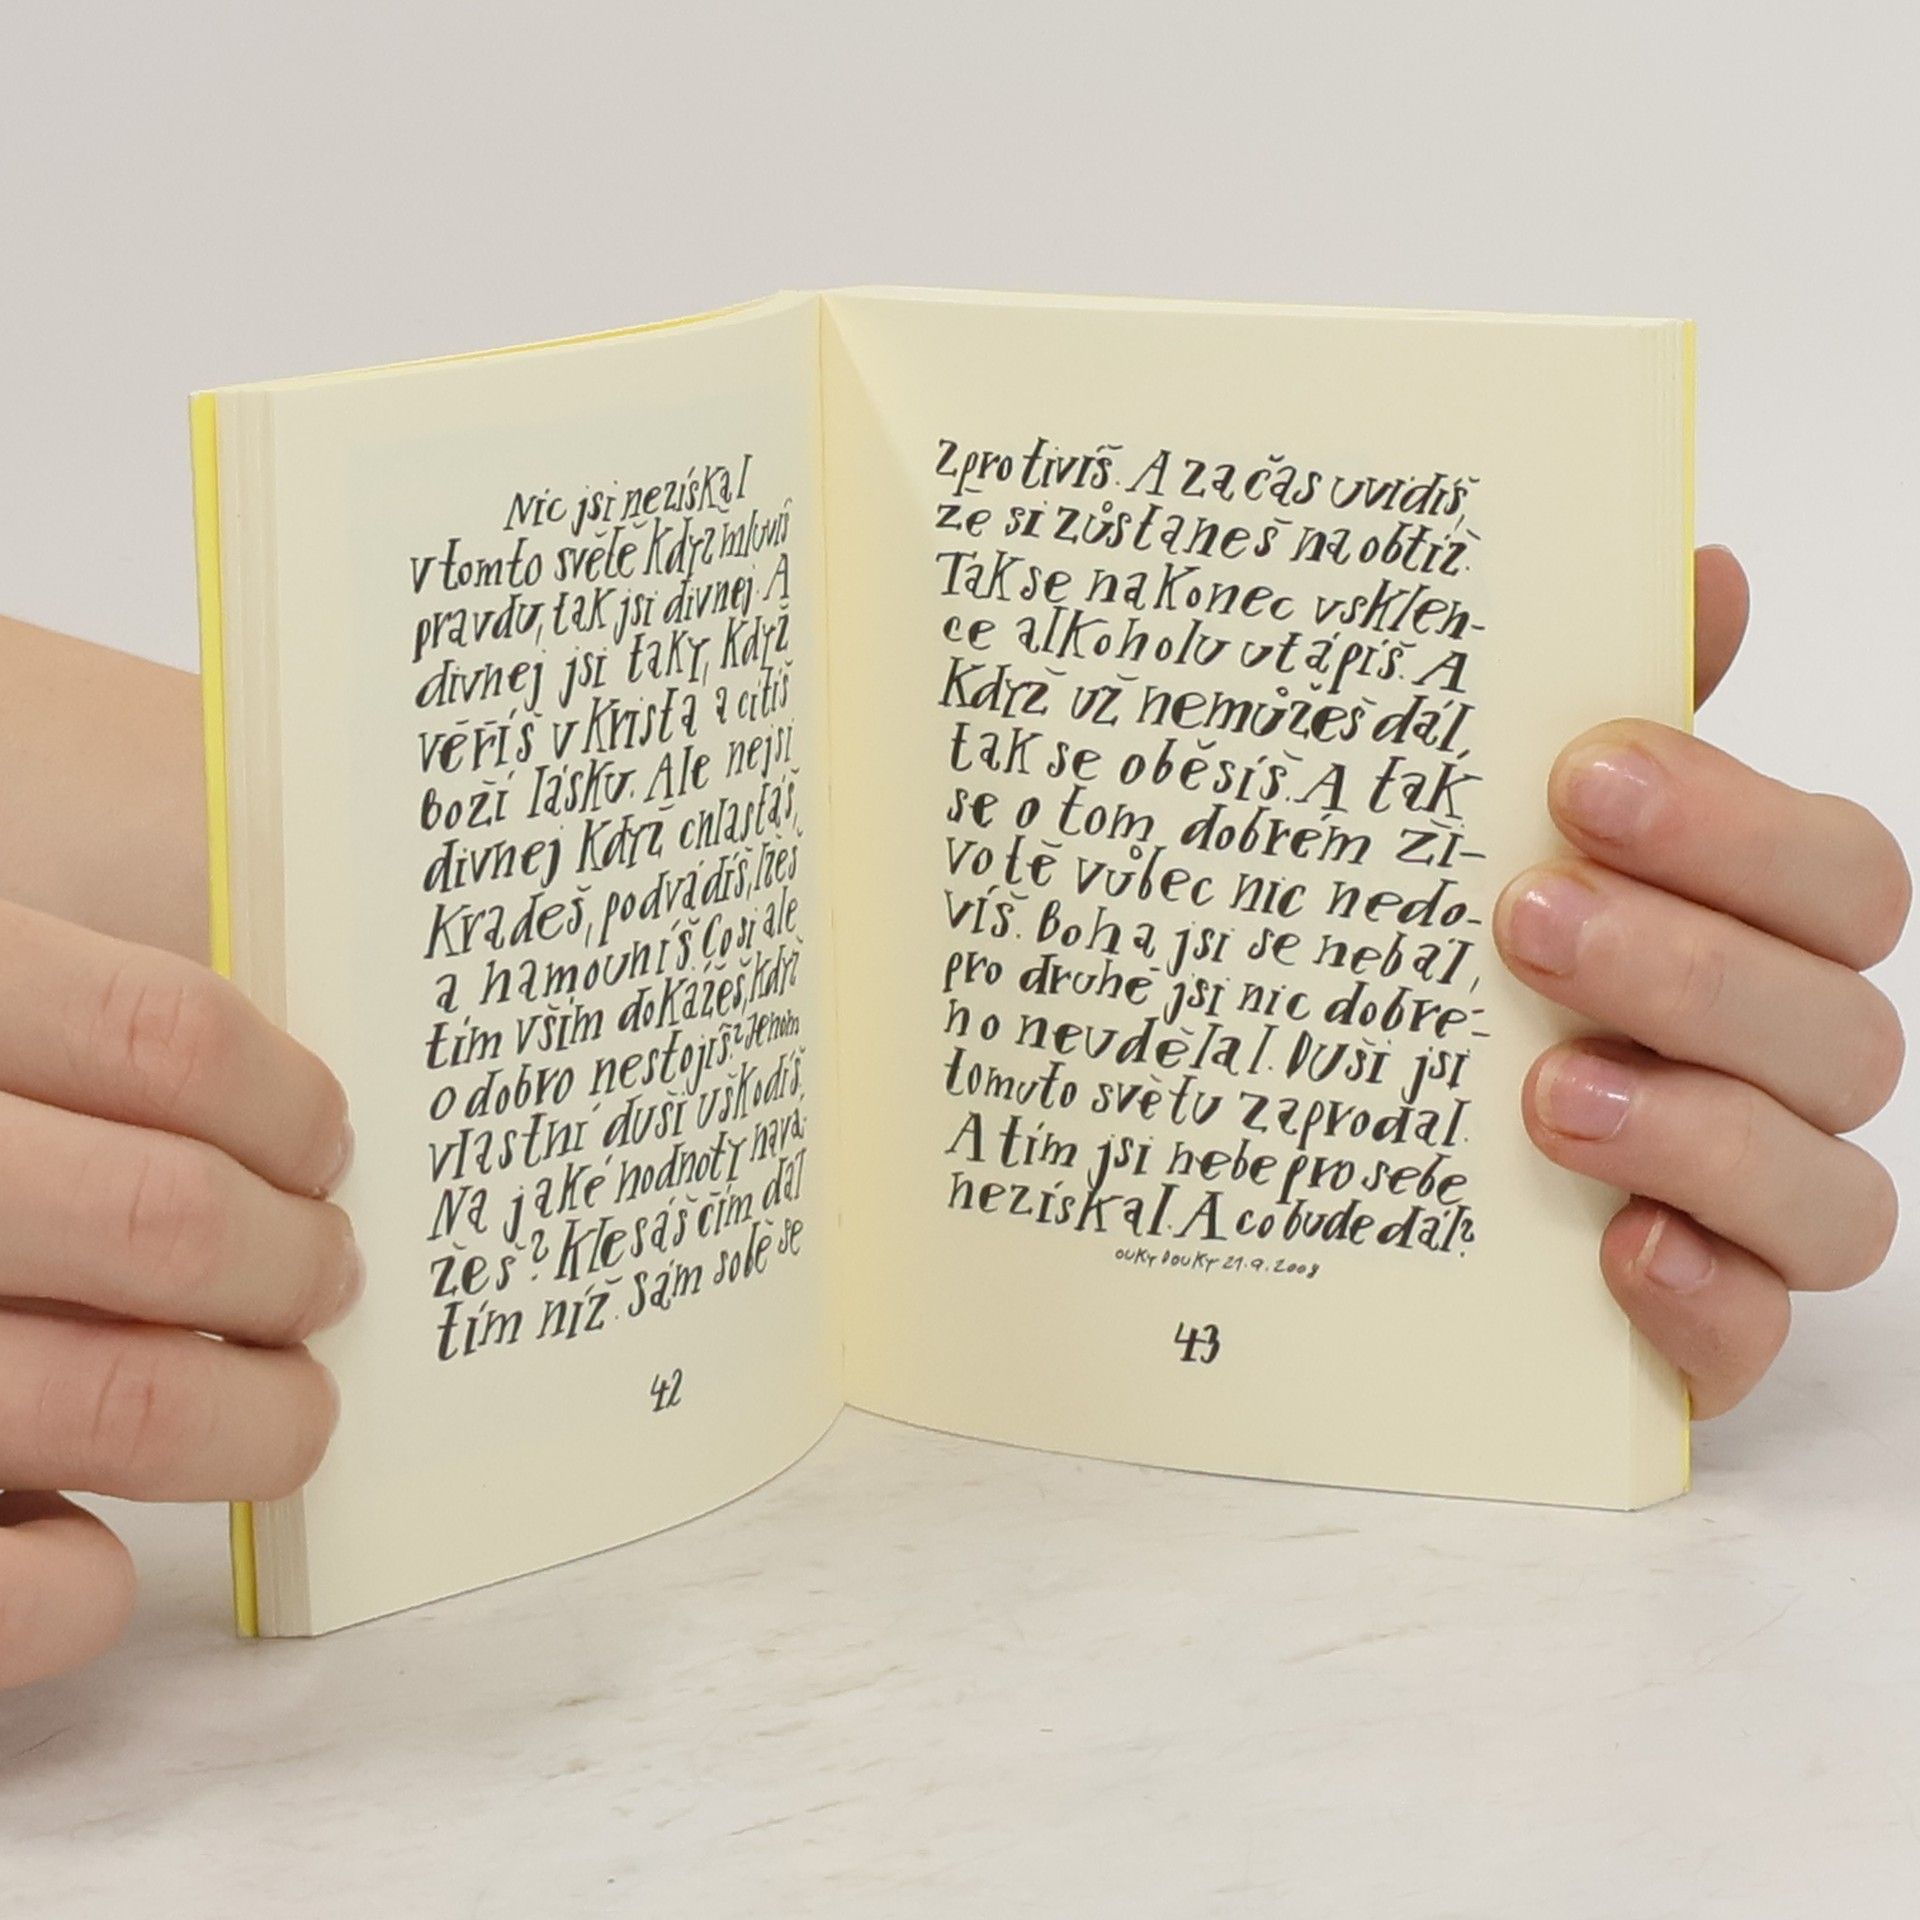 Nic jsi nezískal
v tomto světě Když mluvíš
pravdu, tak jsi divnej. A
divnej jsi taky, Když
věříš v Krista a cítíš
Boží lásku. Ale nejsi
divnej Když chlastáš,
Kradeš, podvádíš, lžeš
a hamouníš. Co si ale
tím vším doKážeš, Když
o dobro nestojíš? Jenom
vlastní duši uškodíš.
Na jaké hodnoty navá-
žeš? Klesáš čím dál
tím níž. Sám sobě se
42
zprotivíš. A za čas uvidíš,
že si zůstaneš na obtíž.
Tak se nakonec vsklen-
ce alkoholu utápíš. A
Když už nemůžeš dál,
tak se oběsíš. A tak
se o tom dobrém ži-
votě vůbec nic nedo-
víš. Boha jsi se nebál,
pro druhé jsi nic dobré-
ho neudělal. Duši jsi
tomuto světu zaprodal.
A tím jsi nebe pro sebe
nezískal. A co bude dál?
OUKY DOUKY 21.9.2008
43